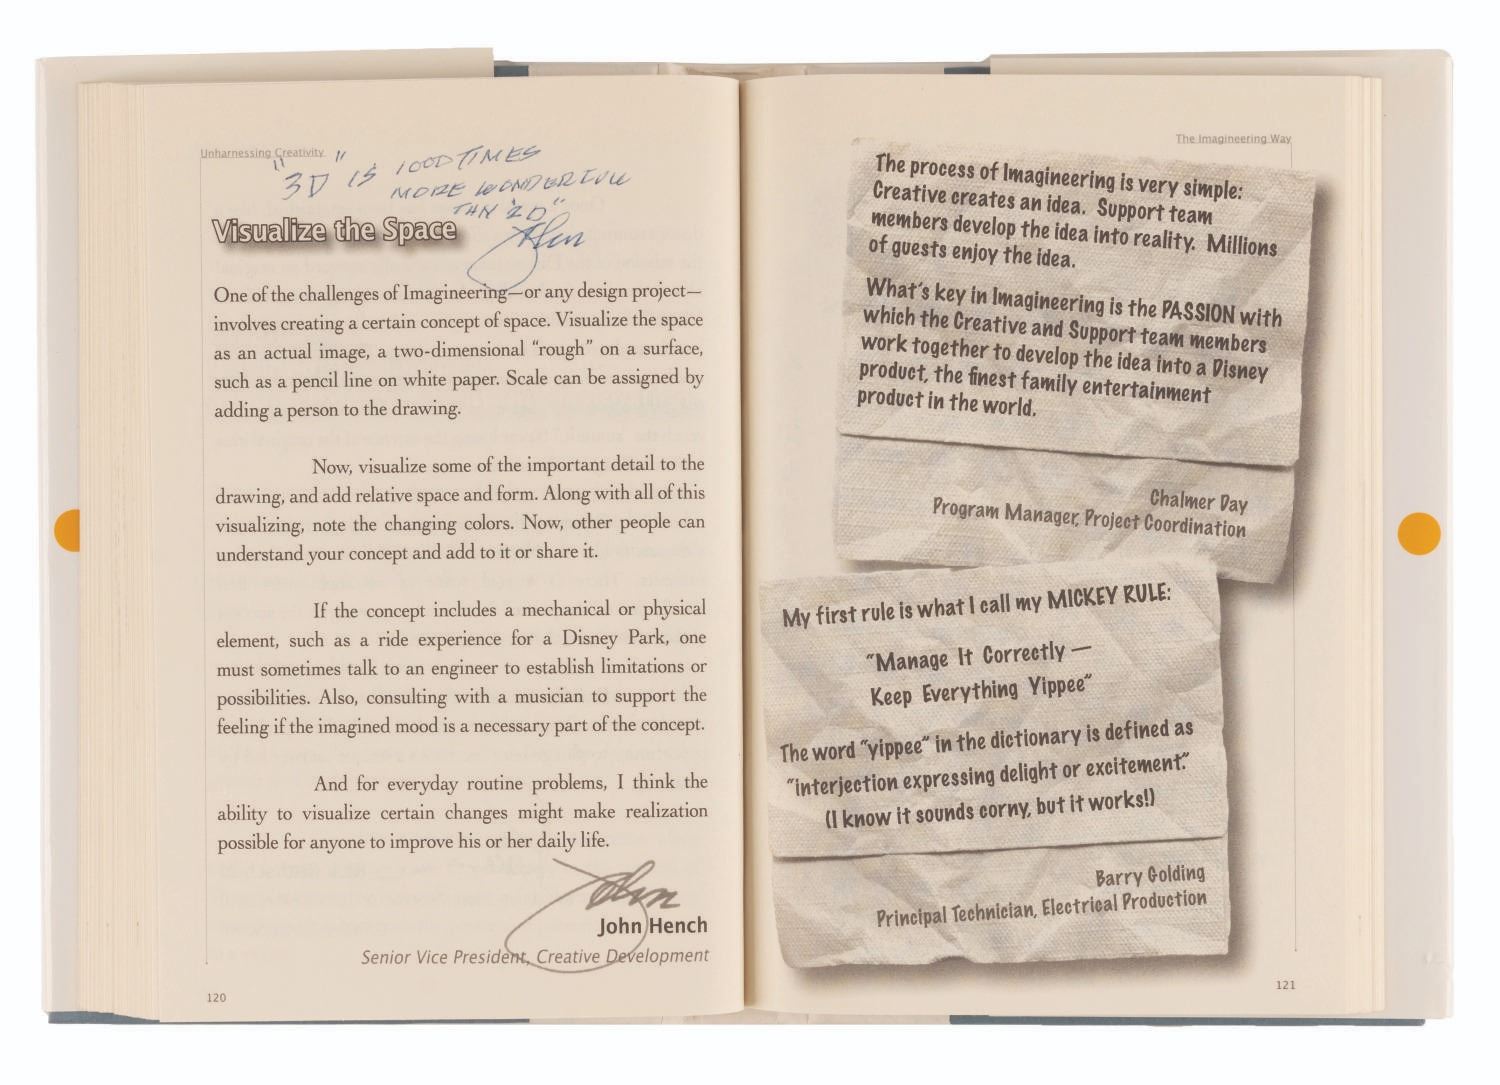 Unharnessing Creativity
"3D" IS 1000 TIMES
MORE WONDERFULL
THN "2D"
John
Visualize the Space
One of the challenges of Imagineering—or any design project—
involves creating a certain concept of space. Visualize the space
as an actual image, a two-dimensional “rough” on a surface,
such as a pencil line on white paper. Scale can be assigned by
adding a person to the drawing.
Now, visualize some of the important detail to the
drawing, and add relative space and form. Along with all of this
visualizing, note the changing colors. Now, other people can
understand your concept and add to it or share it.
If the concept includes a mechanical or physical
element, such as a ride experience for a Disney Park, one
must sometimes talk to an engineer to establish limitations or
possibilities. Also, consulting with a musician to support the
feeling if the imagined mood is a necessary part of the concept.
And for everyday routine problems, I think the
ability to visualize certain changes might make realization
possible for anyone to improve his or her daily life.
John
John Hench
Senior Vice President, Creative Development
120
The Imagineering Way
The process of Imagineering is very simple:
Creative creates an idea. Support team
members develop the idea into reality. Millions
of guests enjoy the idea.
What's key in Imagineering is the PASSION with
which the Creative and Support team members
work together to develop the idea into a Disney
product, the finest family entertainment
product in the world.
Chalmer Day
Program Manager, Project Coordination
My first rule is what I call my MICKEY RULE:
"Manage It Correctly —
Keep Everything Yippee"
The word "yippee" in the dictionary is defined as
"interjection expressing delight or excitement."
(I know it sounds corny, but it works!)
Barry Golding
Principal Technician, Electrical Production
121